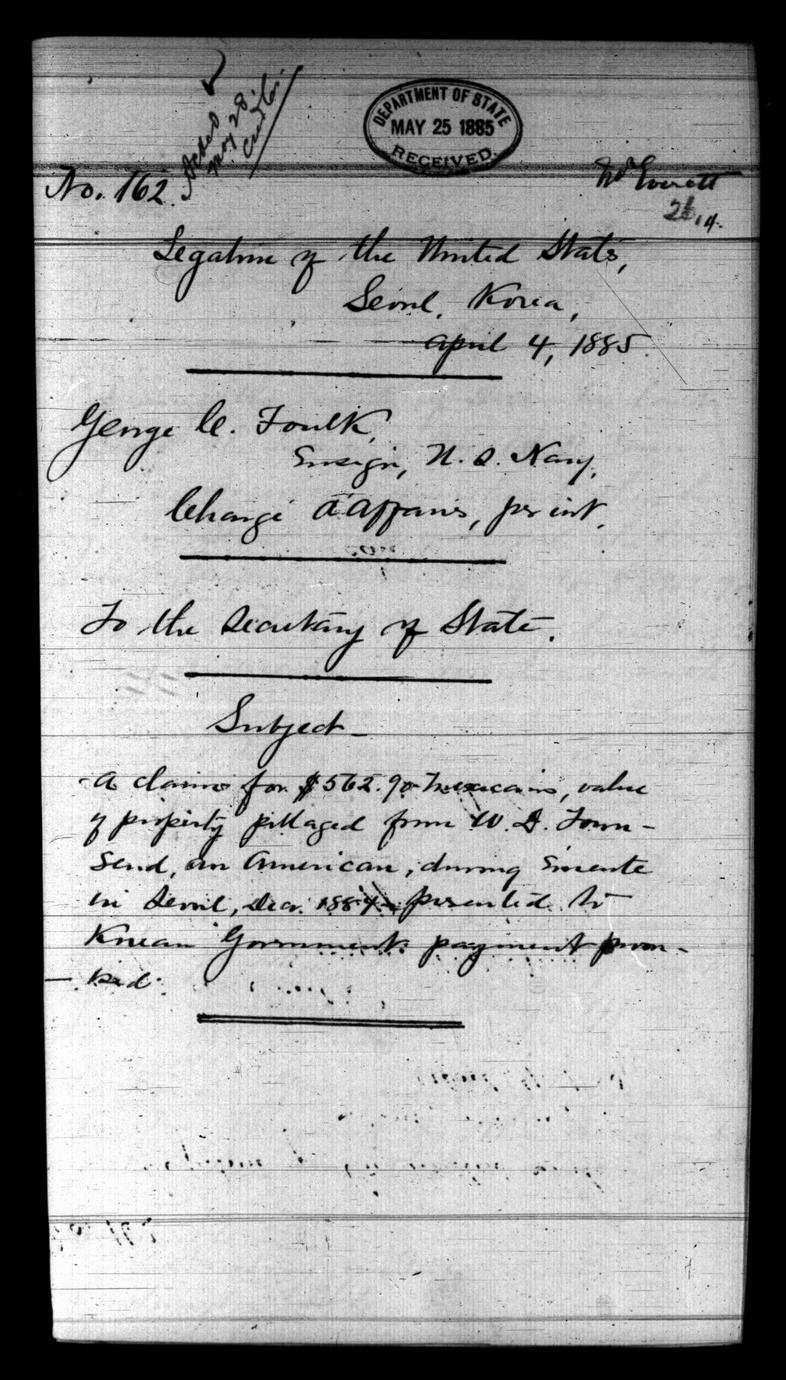 DEPARTMENT OF STATE
MAY 25 1885
RECEIVED.
May 28.
No. 162.
Mr Everett
Legation of the United States,
Seoul, Korea,
April 4, 1885.
George C. Foulk,
Ensign, U.S. Navy,
Chargé d'Affaires, per int.
To the Secretary of State.
Subject
A claim for $562.90 Mexicans, value
of property pillaged from W. D. Town-
send, an American, during Emeute
in Seoul, Dec. 1884, presented to
Korean Government: payment prom-
ised.